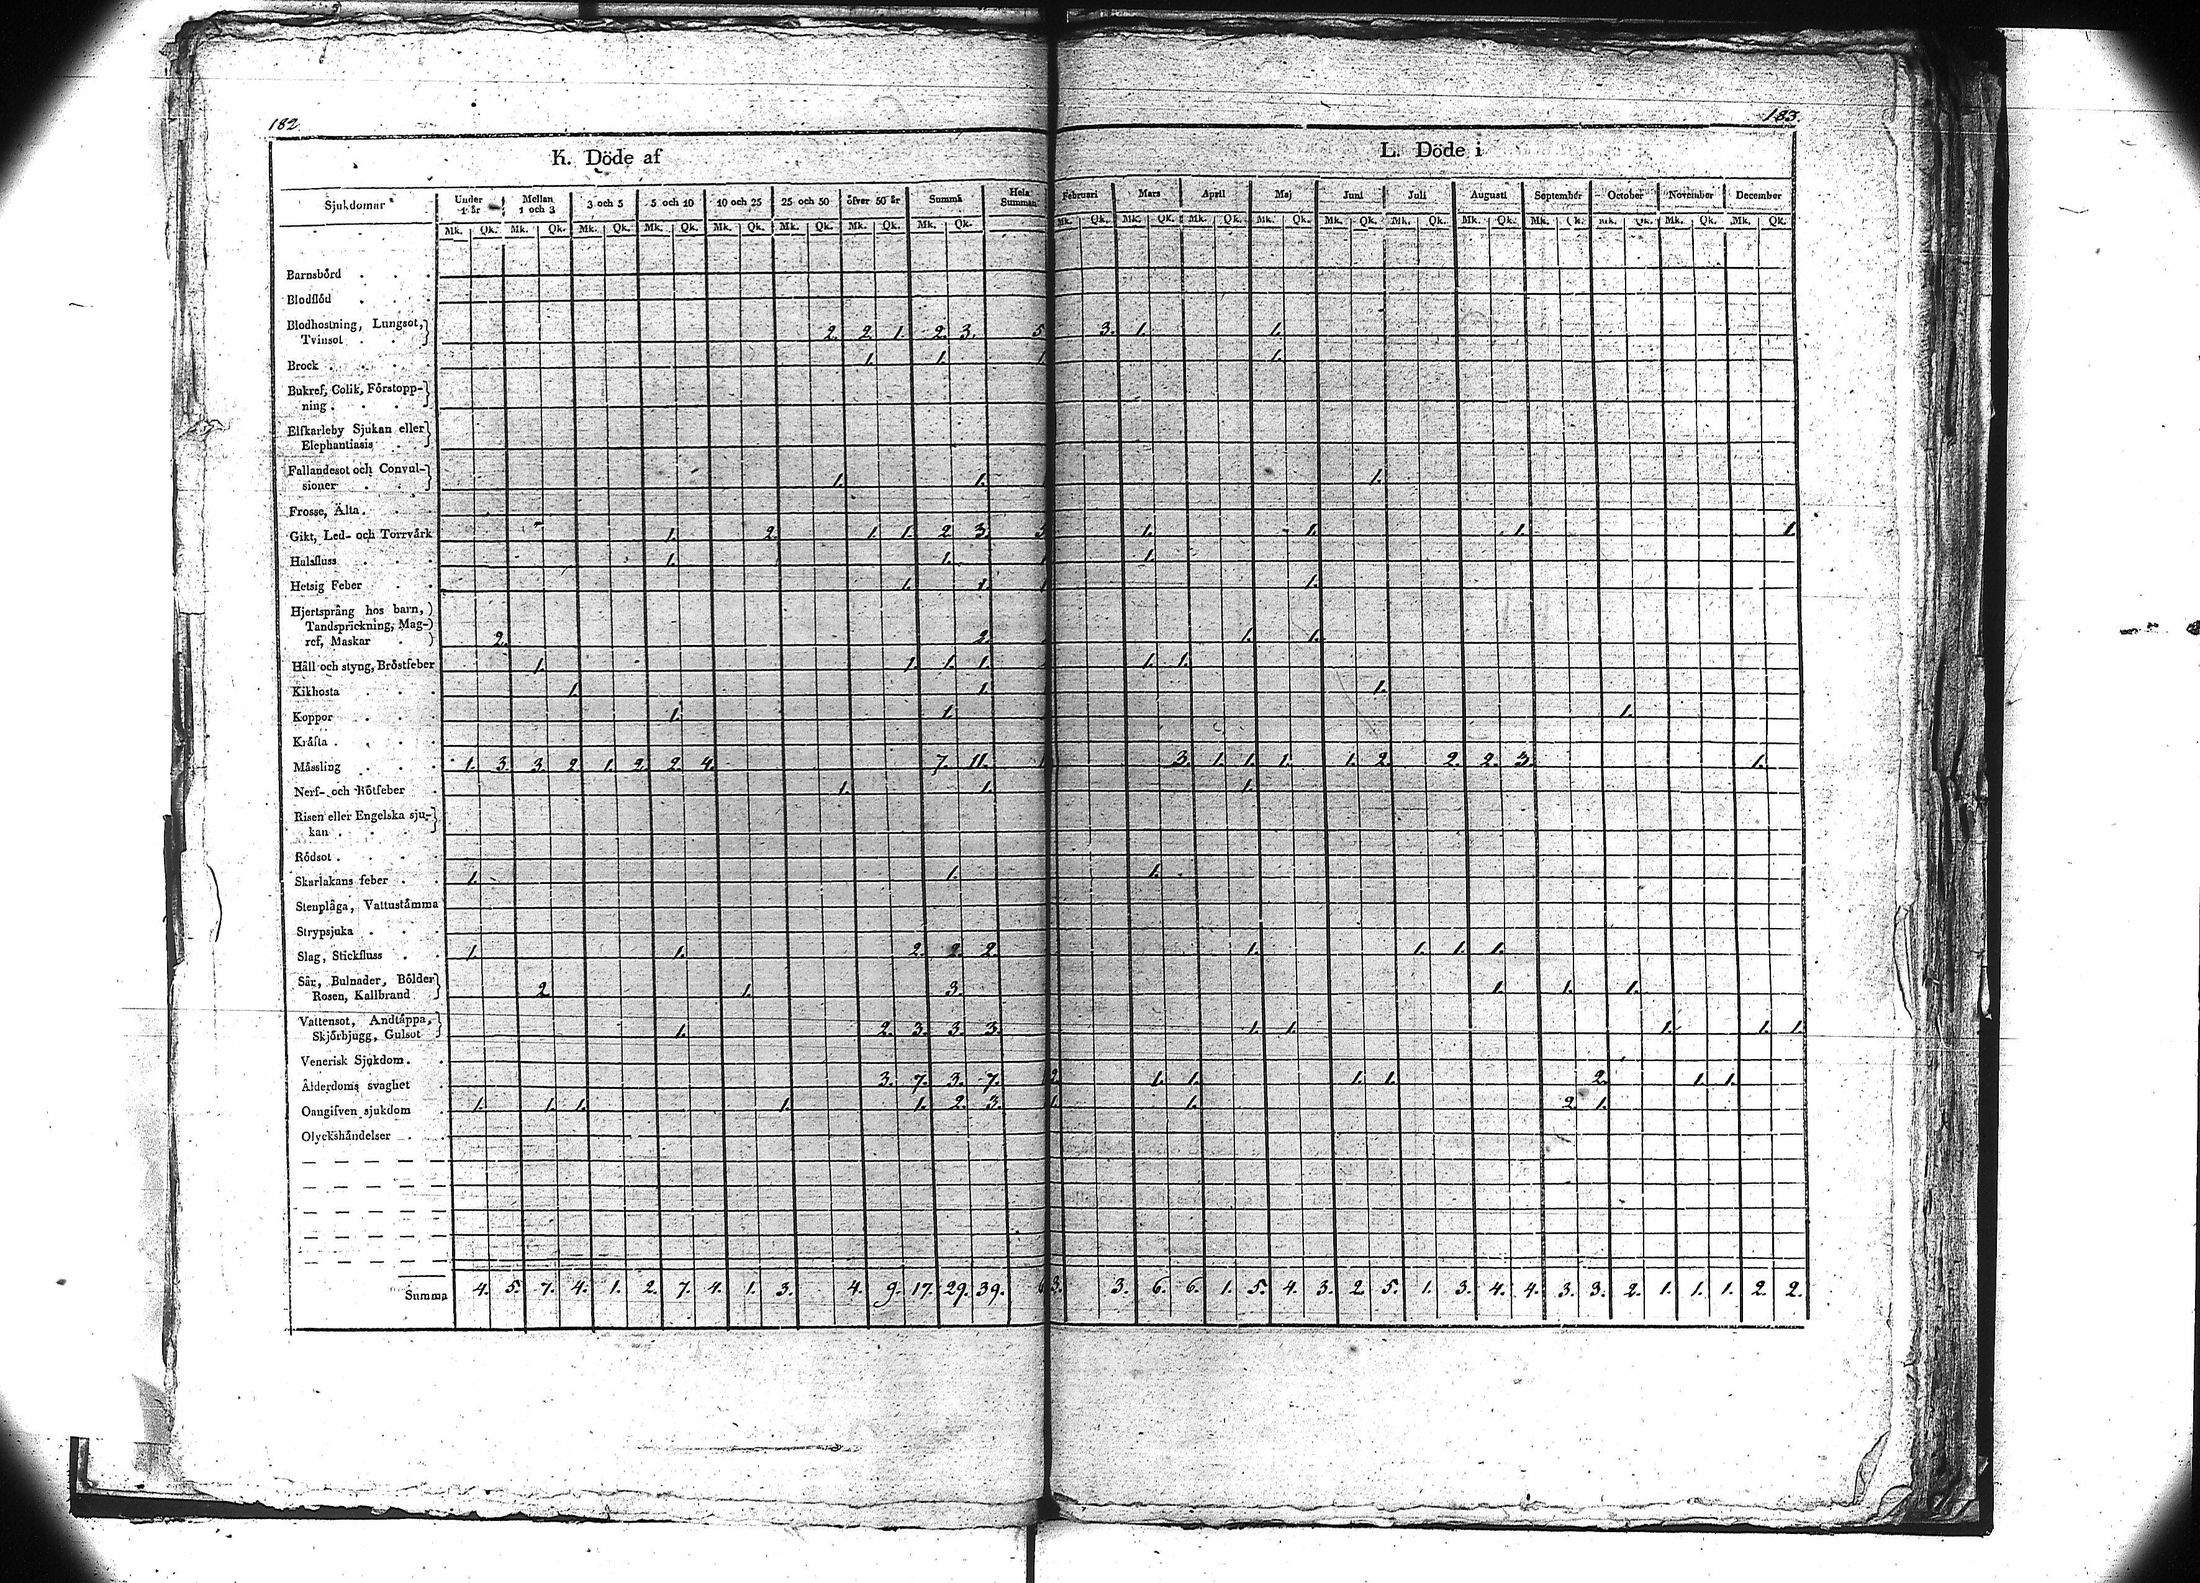 182.
183.
K. Döde af
L. Döde i
Sjukdomar Under 1 år Mellan 1 och 3 3 och 5 5 och 10 10 och 25 25 och 50 öfver 50 år Summa Hela Summan Februari Mars April Maj Juni Juli Augusti September October November December
Mk. Qk. Mk. Qk. Mk. Qk. Mk. Qk. Mk. Qk. Mk. Qk. Mk. Qk. Mk. Qk. Mk. Qk. Mk. Qk. Mk. Qk. Mk. Qk. Mk. Qk. Mk. Qk. Mk. Qk. Mk. Qk. Mk. Qk. Mk. Qk. Mk. Qk.
Barnsbörd . . .
Blodflöd . . .
Blodhostning, Lungsot,
Tvinsot . . 2. 2. 1. 2. 3. 5 3. 1. 1.
Brock . . . . 1. 1. 1 1.
Bukref, Colik, Förstopp-
ning . . .
Elfkarleby Sjukan eller
Elephantiasis .
Fallandesot och Convul-
sioner . . 1. 1. 1.
Frosse, Älta . . .
Gikt, Led- och Torrvärk 1. 2. 1. 1. 2. 3. 1. 1. 1. 1.
Halsfluss . . . 1. 1. 1.
Hetsig Feber . . 1. 1. 1.
Hjertsprång hos barn,
Tandsprickning, Mag-
ref, Maskar . 2. 2. 1. 1.
Håll och styng, Bröstfeber 1. 1. 1. 1. 1. 1.
Kikhosta . . . 1. 1. 1.
Koppor . . . 1. 1. 1.
Kräfta . . . .
Mässling . . . 1. 3. 3. 2. 1. 2. 2. 4. 7. 11. 3. 1. 1. 1. 1. 2. 2. 2. 3. 1.
Nerf- och Rötfeber . 1. 1. 1.
Risen eller Engelska sju-
kan . . .
Rödsot . . . .
Skarlakans feber . . 1. 1. 1.
Stenplåga, Vattustämma
Strypsjuka . . .
Slag, Stickfluss . . 1. 1. 2. 2. 2. 1. 1. 1. 1.
Sår, Bulnader, Bölder
Rosen, Kallbrand 2 1. 3. 1. 1. 1.
Vattensot, Andtäppa,
Skjörbjugg, Gulsot 1. 2. 3. 3. 3. 1. 1. 1. 1. 1.
Venerisk Sjukdom . .
Ålderdoms svaghet . 3. 7. 3. 7. 1. 1. 1. 1. 2. 1. 1.
Oangifven sjukdom . 1. 1. 1. 1. 1. 2. 3. 1. 2. 1.
Olyckshändelser . .
Summa 4. 5. 7. 4. 1. 2. 7. 4. 1. 3. 4. 9. 17. 29. 39. 3. 6. 6. 1. 5. 4. 3. 2. 5. 1. 3. 4. 4. 3. 3. 2. 1. 1. 1. 2. 2.